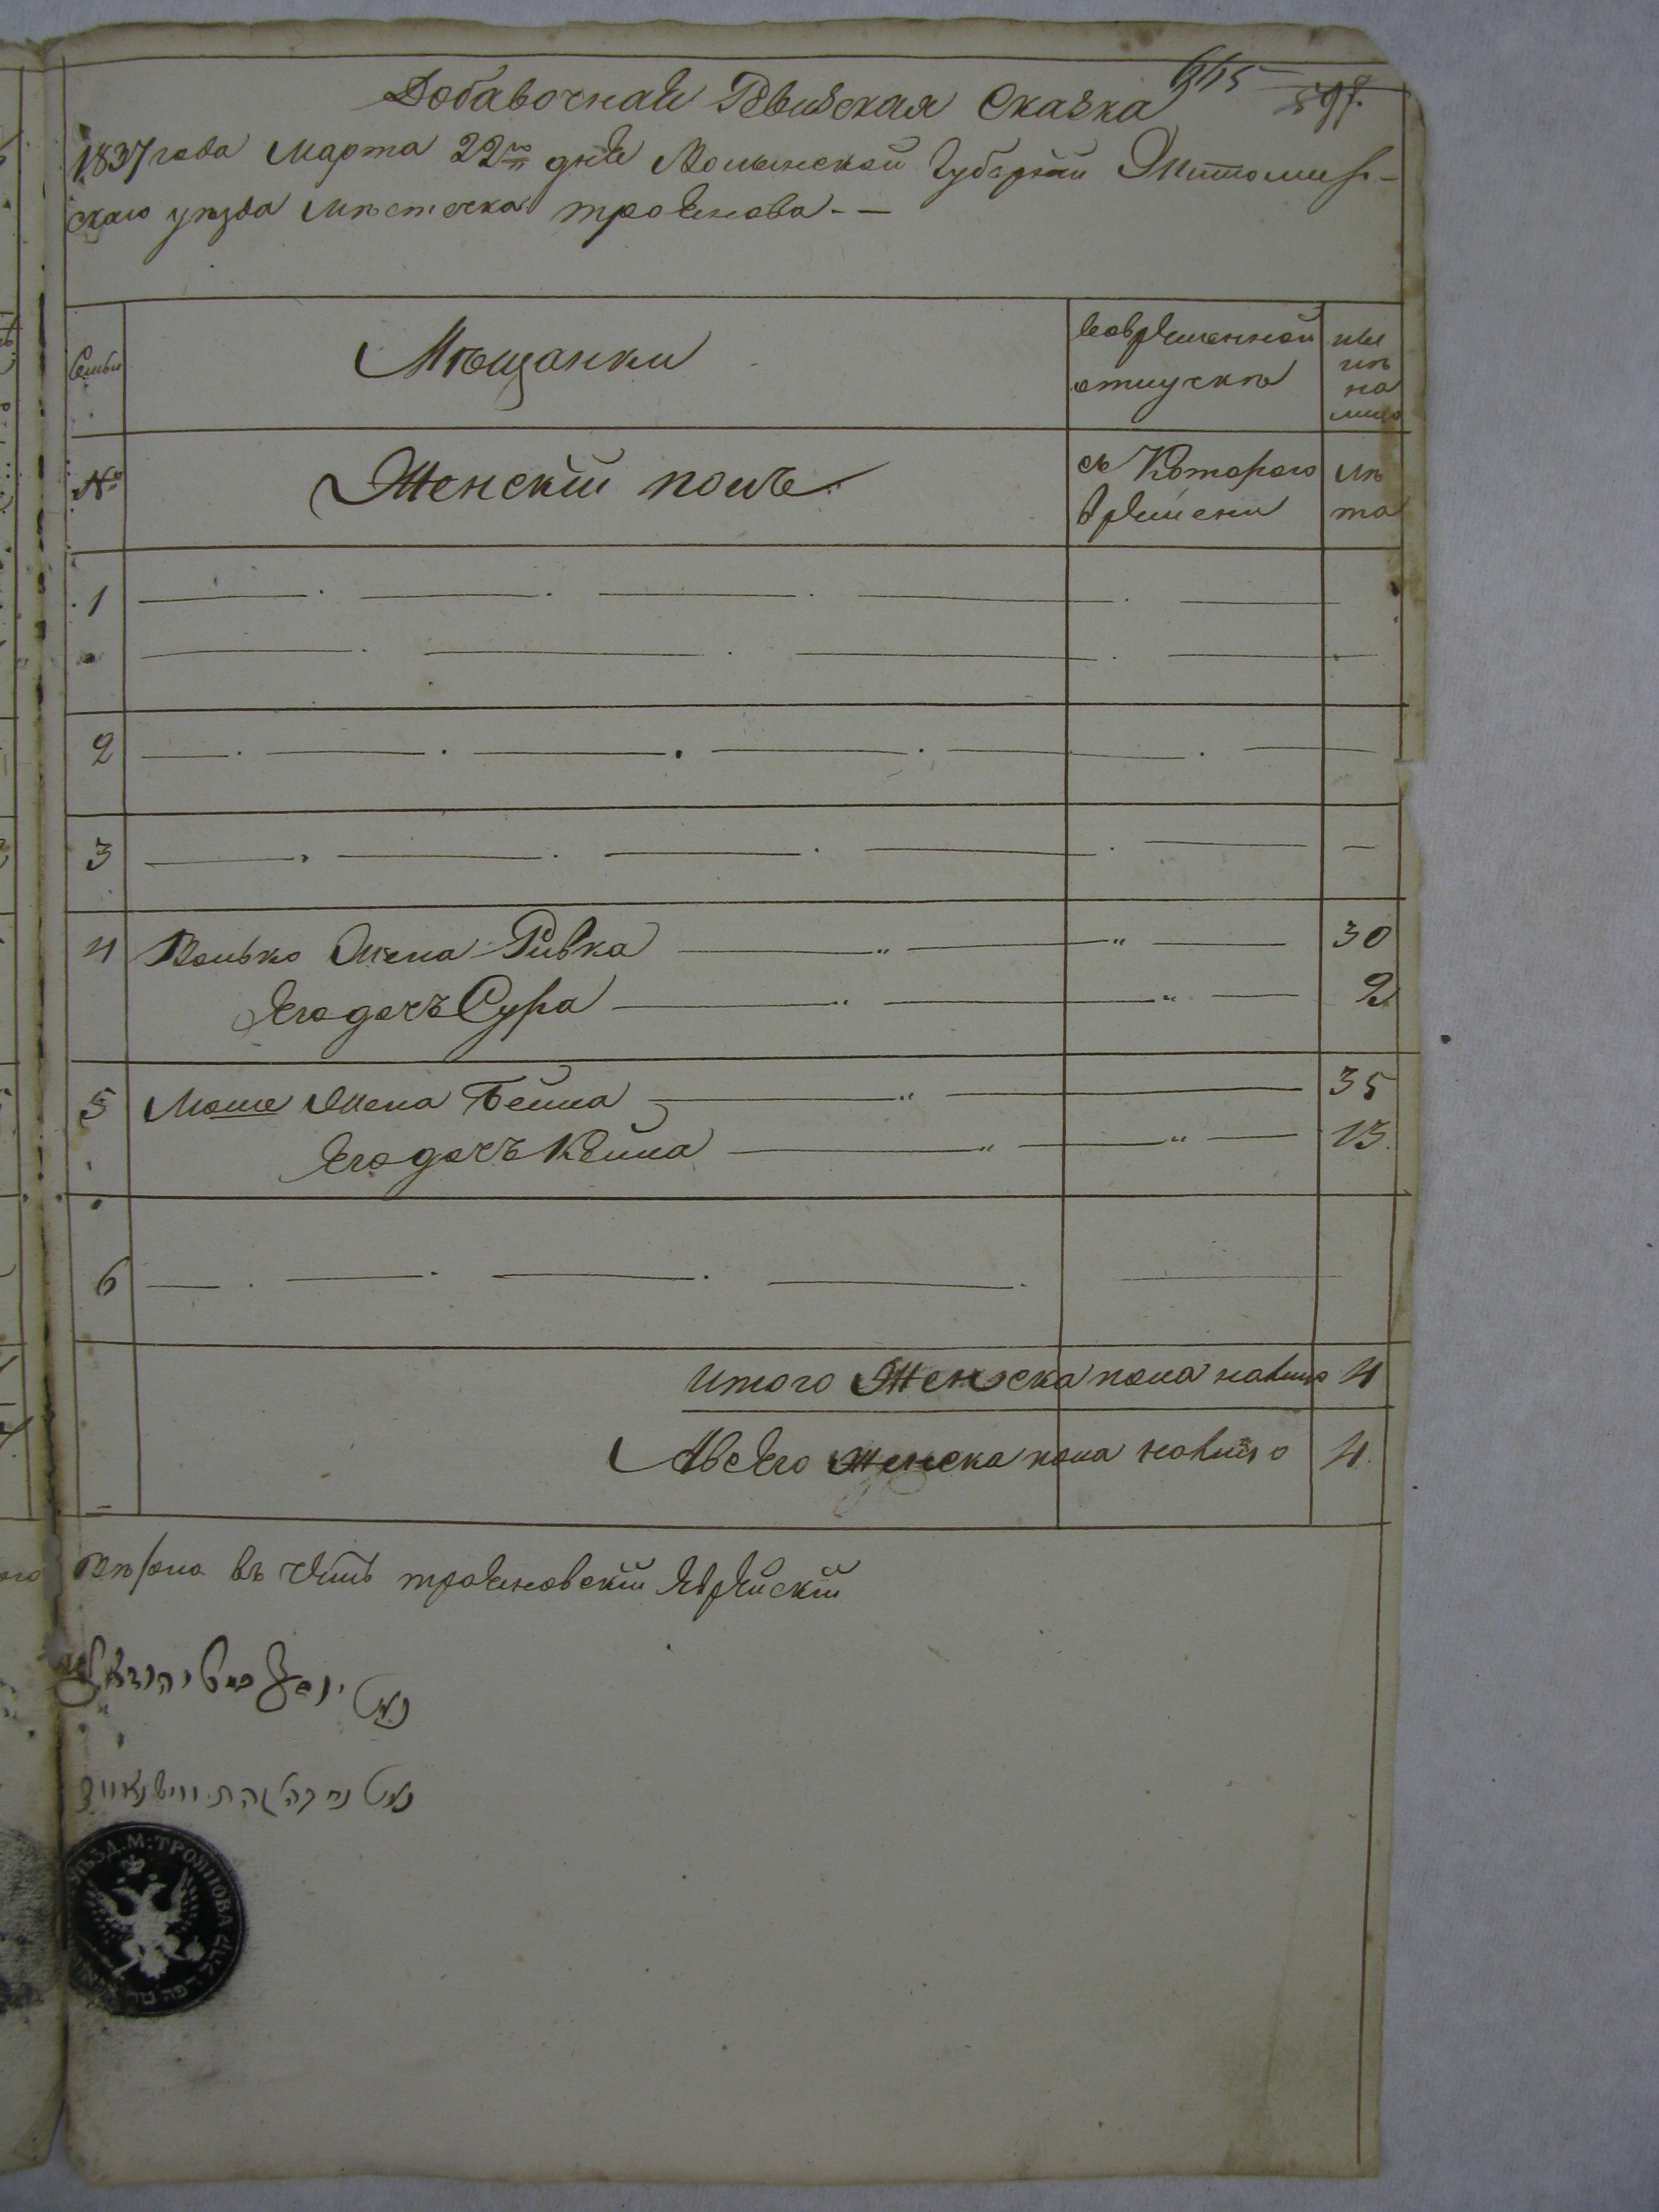 Добавочная Ревизская Сказка
615 597.
1837 года Марта 22го дня Волынской Губернии Житомир-
скаго уезда местечка троянова.-
Семьи Мещанки во временной отлучке на лицо
№ Женскiй полъ съ Котораго времени лета
1
2
3
4 Волько жена Ривка 30
Его дочь Сура 2
5 Мошe жена Бейла 35
Его дочь Кейла 13
6
итого Женска пола налицо 4
Авсего женска пола налицо 4
трояновскiй Еврейскiй
УѢЗД. М: ТРОЯНОВА